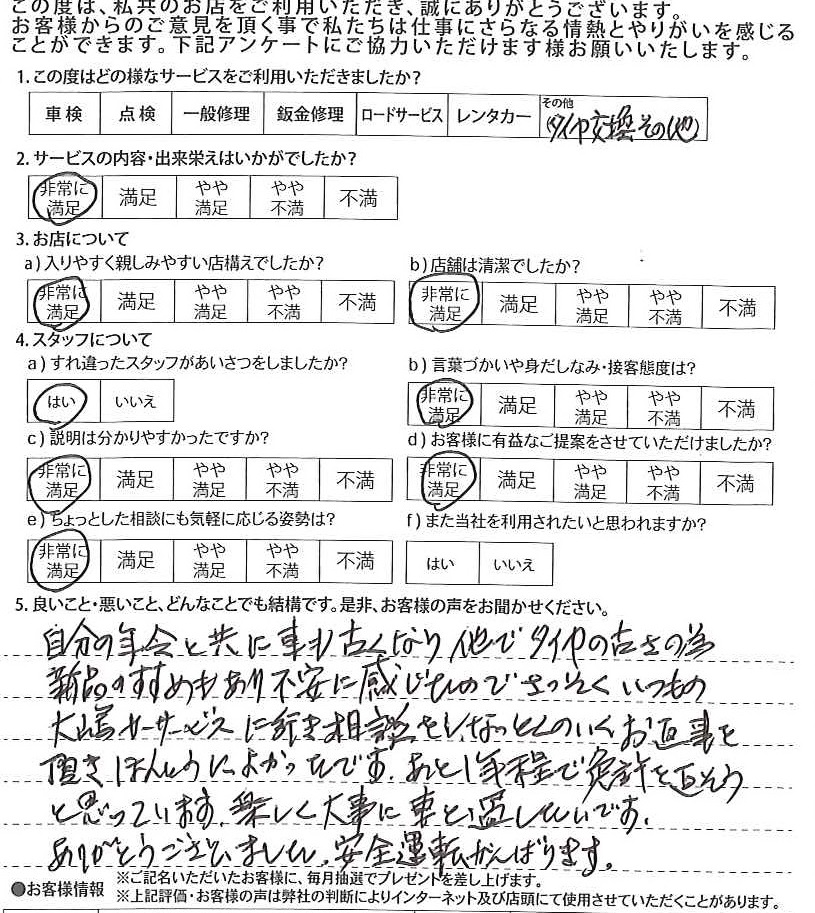 この度は、私共のお店をご利用いただき、誠にありがとうございます。
お客様からのご意見を頂く事で私たちは仕事にさらなる情熱とやりがいを感じる
ことができます。下記アンケートにご協力いただけます様お願いいたします。
1.この度はどの様なサービスをご利用いただきましたか?
車検 点検 一般修理 鈑金修理 ロードサービス レンタカー その他
(タイヤ交換その他)
2.サービスの内容・出来栄えはいかがでしたか?
非常に満足 満足 やや満足 やや不満 不満
3.お店について
a)入りやすく親しみやすい店構えでしたか? b)店舗は清潔でしたか?
非常に満足 満足 やや満足 やや不満 不満 非常に満足 満足 やや満足 やや不満 不満
4.スタッフについて
a)すれ違ったスタッフがあいさつをしましたか? b)言葉づかいや身だしなみ・接客態度は?
はい いいえ 非常に満足 満足 やや満足 やや不満 不満
c)説明は分かりやすかったですか? d)お客様に有益なご提案をさせていただけましたか?
非常に満足 満足 やや満足 やや不満 不満 非常に満足 満足 やや満足 やや不満 不満
e)ちょっとした相談にも気軽に応じる姿勢は? f)また当社を利用されたいと思われますか?
非常に満足 満足 やや満足 やや不満 不満 はい いいえ
5.良いこと・悪いこと、どんなことでも結構です。是非、お客様の声をお聞かせください。
自分の年令と共に車も古くなり他でタイヤの古さの為
新品のすすめもあり不安に感じたのでさっそくいつもの
大嶋カーサービスに行き相談をしなっとくのいくお返事を
頂きほんとうによかったです。あと1年程で免許を返そう
と思っています。楽しく大事に車と過したいです。
ありがとうございました。安全運転がんばります。
●お客様情報 ※ご記名いただいたお客様に、毎月抽選でプレゼントを差し上げます。
※上記評価・お客様の声は弊社の判断によりインターネット及び店頭にて使用させていただくことがあります。